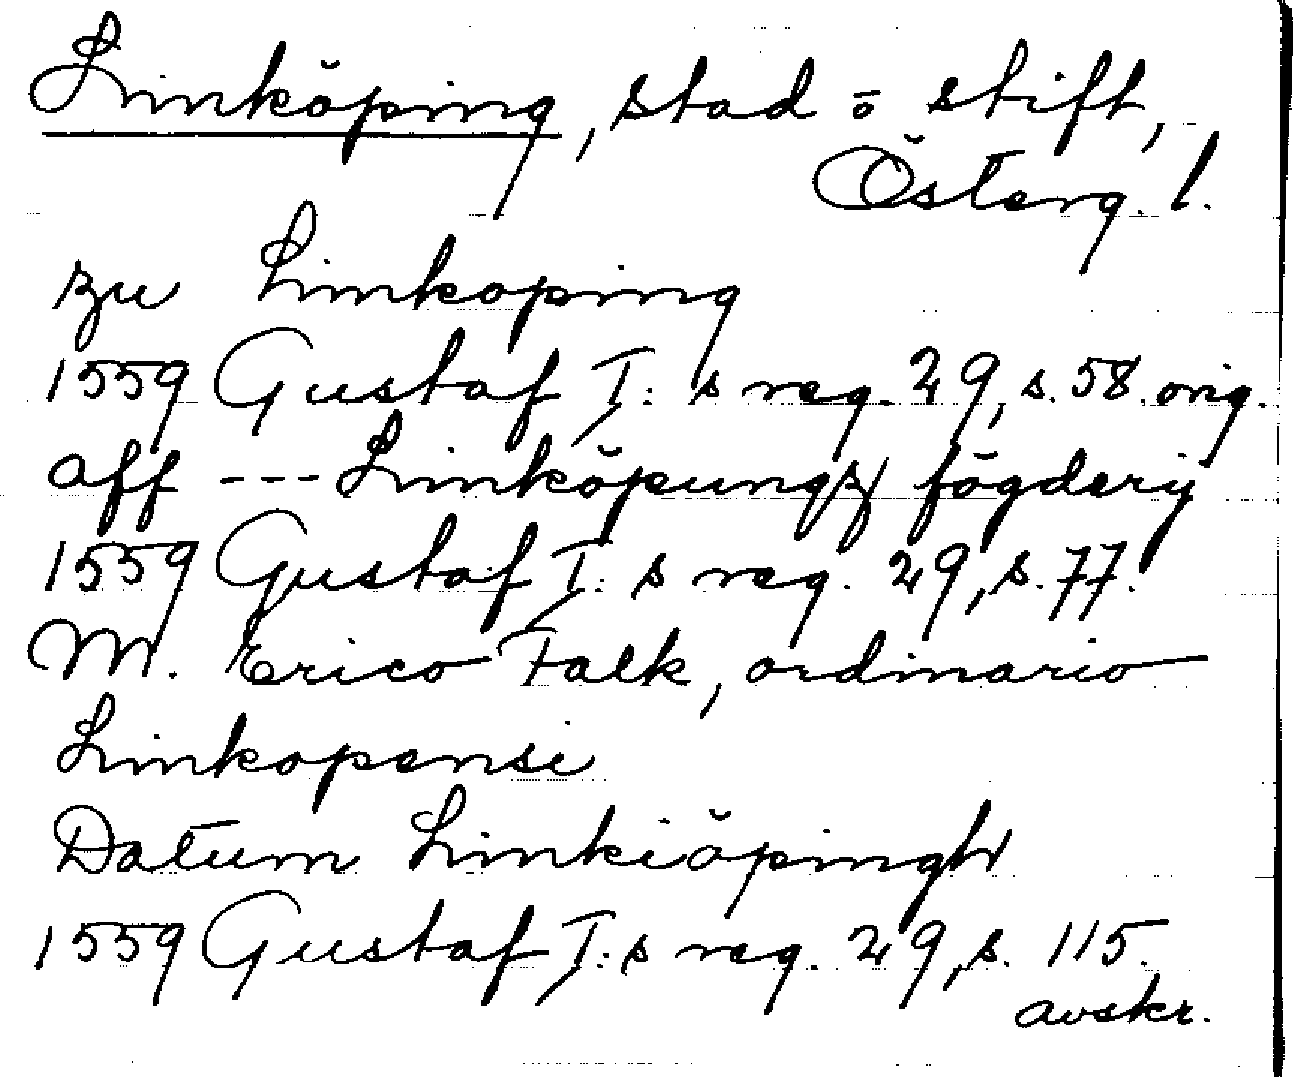 Linköping, stad o stift,
Österg. l.
zu Linkoping
1559 Gustaf I:s reg. 29, s. 58. orig.
aff --- Linköpungz fögderij
1559 Gustaf I:s reg. 29, s. 77.
M. Erico Falk, ordinario
Linkopensi
Datum Linkiöpingh
1559 Gustaf I:s reg. 29, s. 115.
avskr.